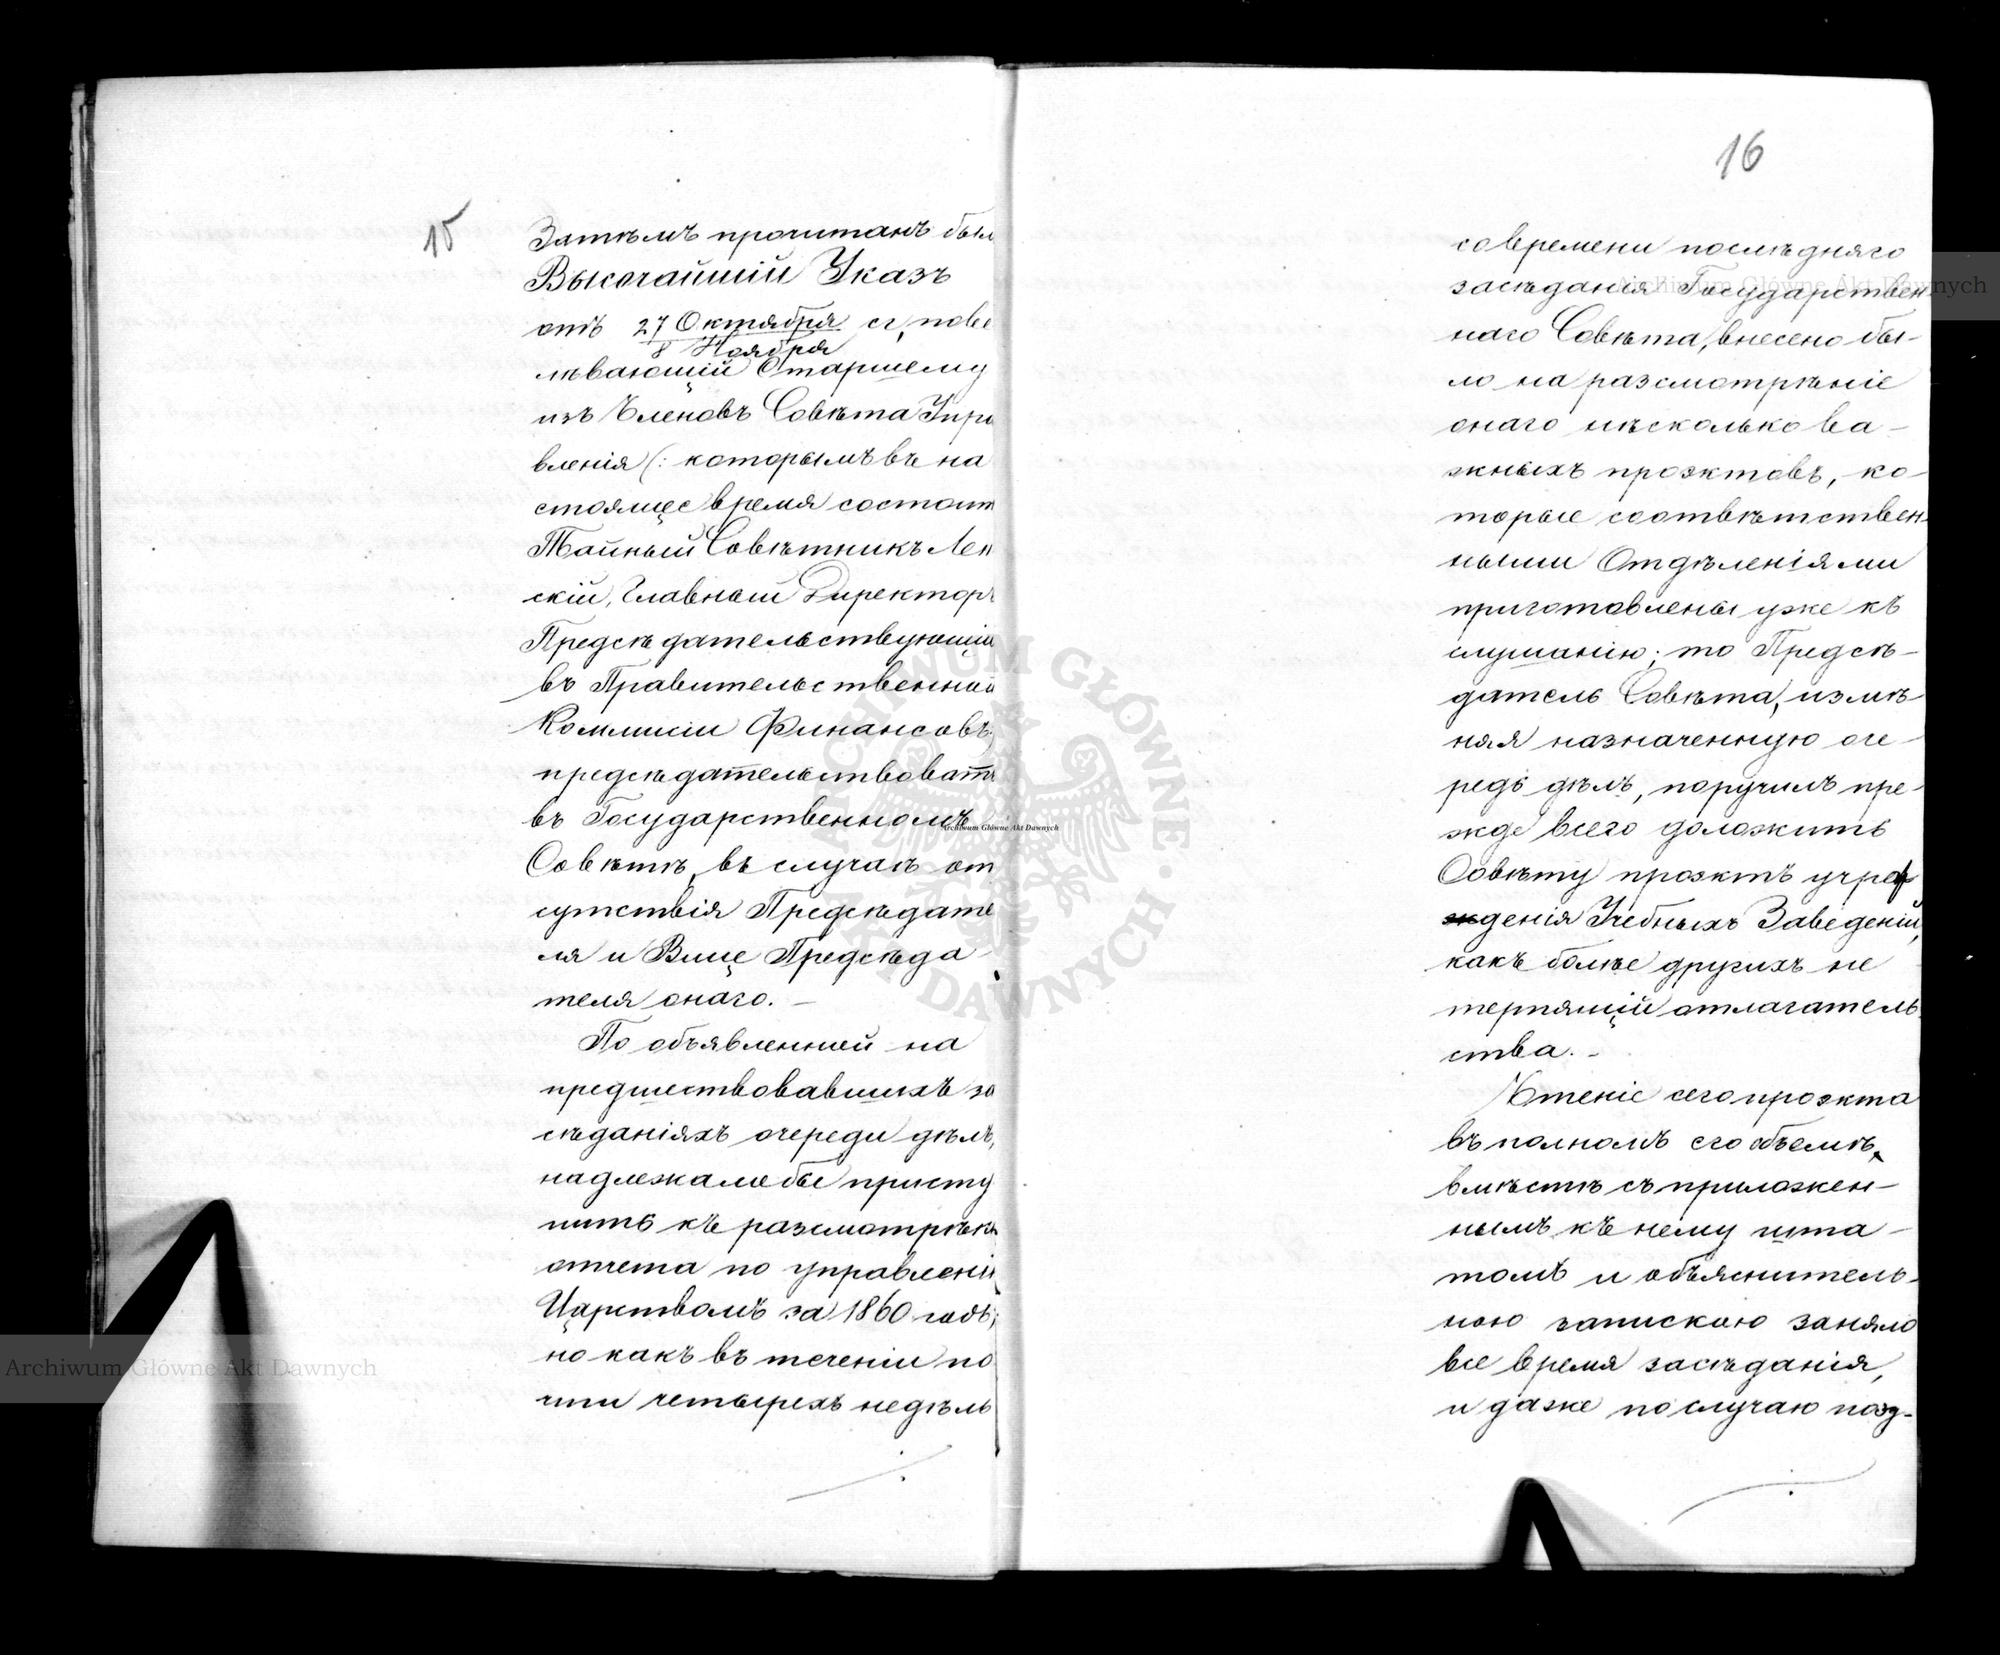 15
Затѣмъ прочитанъ был
Высочайшій Указъ
отъ 27 Октября сг, пове
8 Ноября
лѣвающій Старшему
изъ Членовъ Совѣта Упра
вленія (: которымъ въ на
стоящее время состоит
Тайный Совѣтникъ Лен
скій, Главный Директоръ
Предсѣдательствующій
въ Правительственной
Коммисіи Финансовъ;
предсѣдательствовать
въ Государственномъ
Совѣтѣ, въ случаѣ от
сутствія Предсѣдате
ля и Вице Предсѣда
теля онаго. —
По объявленной на
предшествовавшихъ за
сѣданіяхъ очереди дѣлъ,
надлежало бы присту
пить къ разсмотрѣнію
отчета по управленію
Царствомъ за 1860 годъ;
но какъ въ теченіи по
чти четырехъ недѣль
16
со времени послѣдняго
засѣданія Государствен-
наго Совѣта, внесено бы-
ло на разсмотрѣніе
онаго нѣсколько ва-
жныхъ проэктовъ, ко-
торые соотвѣтствен-
ными Отдѣленіями
приготовлены уже къ
слушанію; то Предсѣ-
датель Совѣта, измѣ-
няя назначенную оче-
редь дѣлъ, поручилъ пре-
жде всего доложить
Совѣту проэктъ учреж
денія Учебныхъ Заведеній,
какъ болѣе другихъ не
терпящій отлагатель
ства. -
Чтеніе сего проэкта
въ полномъ его объемѣ,
вмѣстѣ съ приложен-
нымъ къ нему шта-
томъ и объяснитель-
ною запискою заняло
все время засѣданія,
и даже по случаю позд-
Archiwum Główne Akt Dawnych
Archiwum Główne Akt Dawnych
Archiwum Główne Akt Dawnych
ARCHIWUM GŁÓWNE AKT DAWNYCH